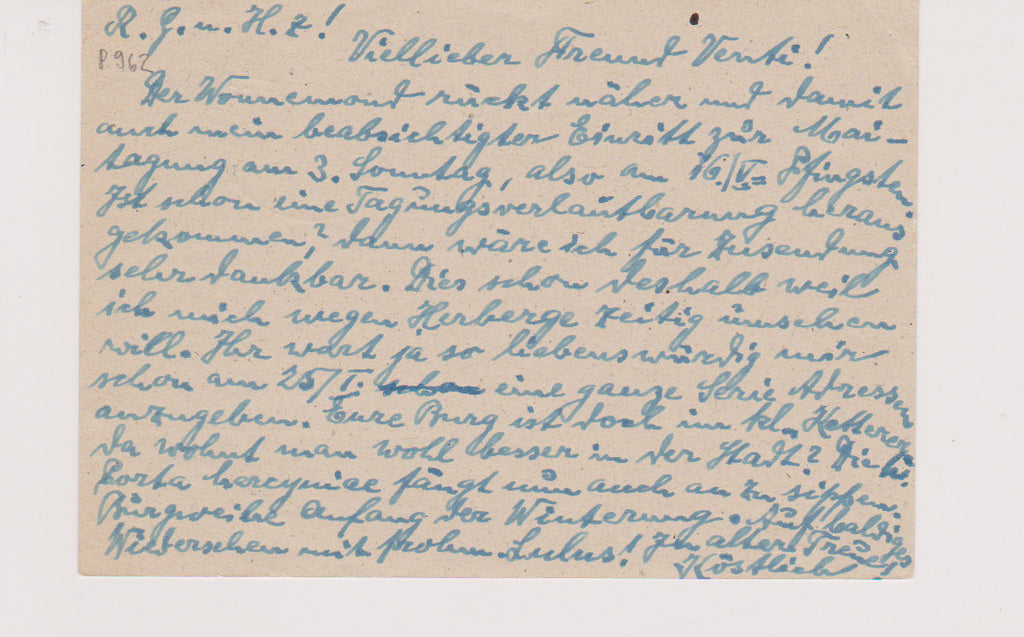 R. G. u. H. z!
P. 962
Viellieber Freund Venti!
Der Wonnemond rückt näher und damit
auch mein beabsichtigter Einritt zur Mai-
tagung am 3. Sonntag, also am 16./V. = Pfingsten.
Ist schon eine Tagungsverlautbarung heraus
gekommen, ? dann wäre ich für Zusendung
sehr dankbar. Dies schon deshalb weil
ich mich wegen Herberge zeitig umsehen
will. Ihr wart ja so liebenswürdig mir
schon am 25/I. eine ganze Serie Adressen
anzugeben. Eure Burg ist doch im kl.
da wohnt man woll besser in der Stadt? Die
Porta hercyniae fängt nun auch an zu sippen.
Burgweihe Anfang der Winterung. Auf baldiges
Wiedersehen mit frohem Lulus! In alter Treue
Köstlich